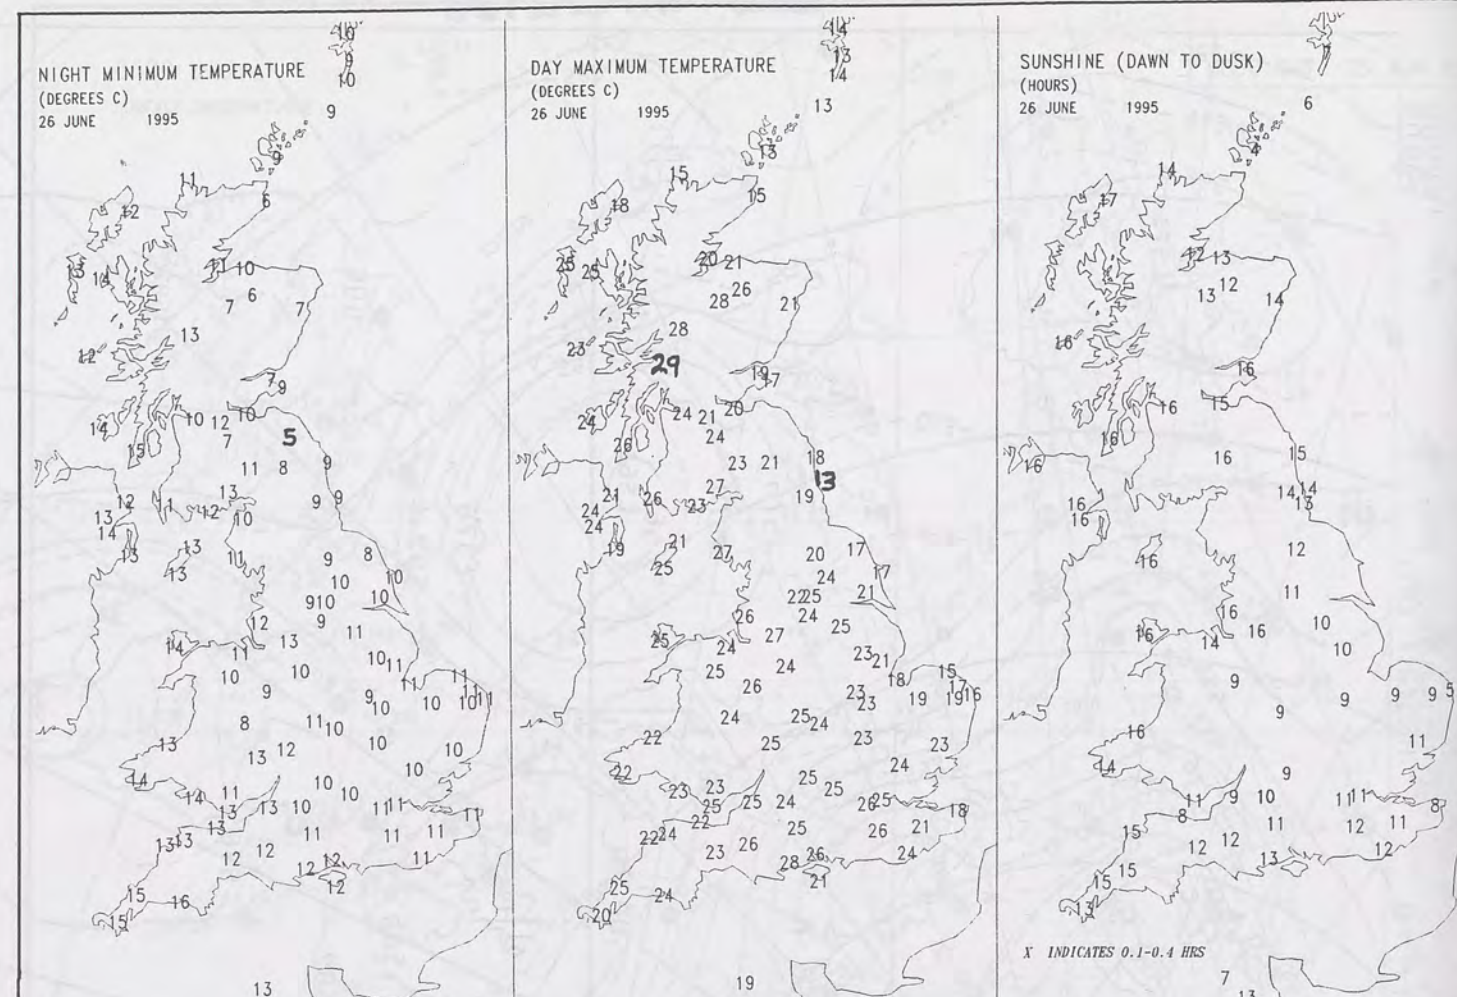 NIGHT MINIMUM TEMPERATURE
(DEGREES C)
26 JUNE 1995
10
9
10
9
9
11
6
12
13
14
11 10
6
7 7
13
12
7 9
10 12 10
14
7 5
15
11 8 9
13
12 11 12 9 9
13 10
14
13 13 11 9 8
13
10 10
9 10 10
12 9
14 11 13 11
10 10 10 11
9 11 11 11
9 10 10 10 11
8 11 10
13 13 12 10 10
14 10
14 11 10 10
13 13 10 11 11 11
13
13 13 11 11 11
12 12 12 12 11
12
15 16
15
13
DAY MAXIMUM TEMPERATURE
(DEGREES C)
26 JUNE 1995
14
13
14
13
13
15
15
18
25 25 20 21
26
28 21
28
23
29 19 17
24 24 21 20
24
26
23 21 18
27 13
21 26 23 19
24
24
19 21 27 20 17
25
24 17
22 25 21
26 24
25 24 27 25
25 24 23 21
26 23 18 15
23 19 19 17 16
24 25 24
22 25 23 23
22 24
23 23 25 25
25 25 24 26 25 18
22
22 24 25 26 21
23 26 28 26 24
21
25 24
20
19
SUNSHINE (DAWN TO DUSK)
(HOURS)
26 JUNE 1995
7
6
4
14
17
12 13
12
13 14
16
16
16 15
16
16 16 15
14 14
16 13
16
16 12
11
16 10
16 14 16
10
9 9 9 9 5
9
16 11
14 9
11 9 10 11 11 8
8
15 11 12 11
12 12 13 12
15 15
13
X INDICATES 0.1-0.4 HRS
7
13